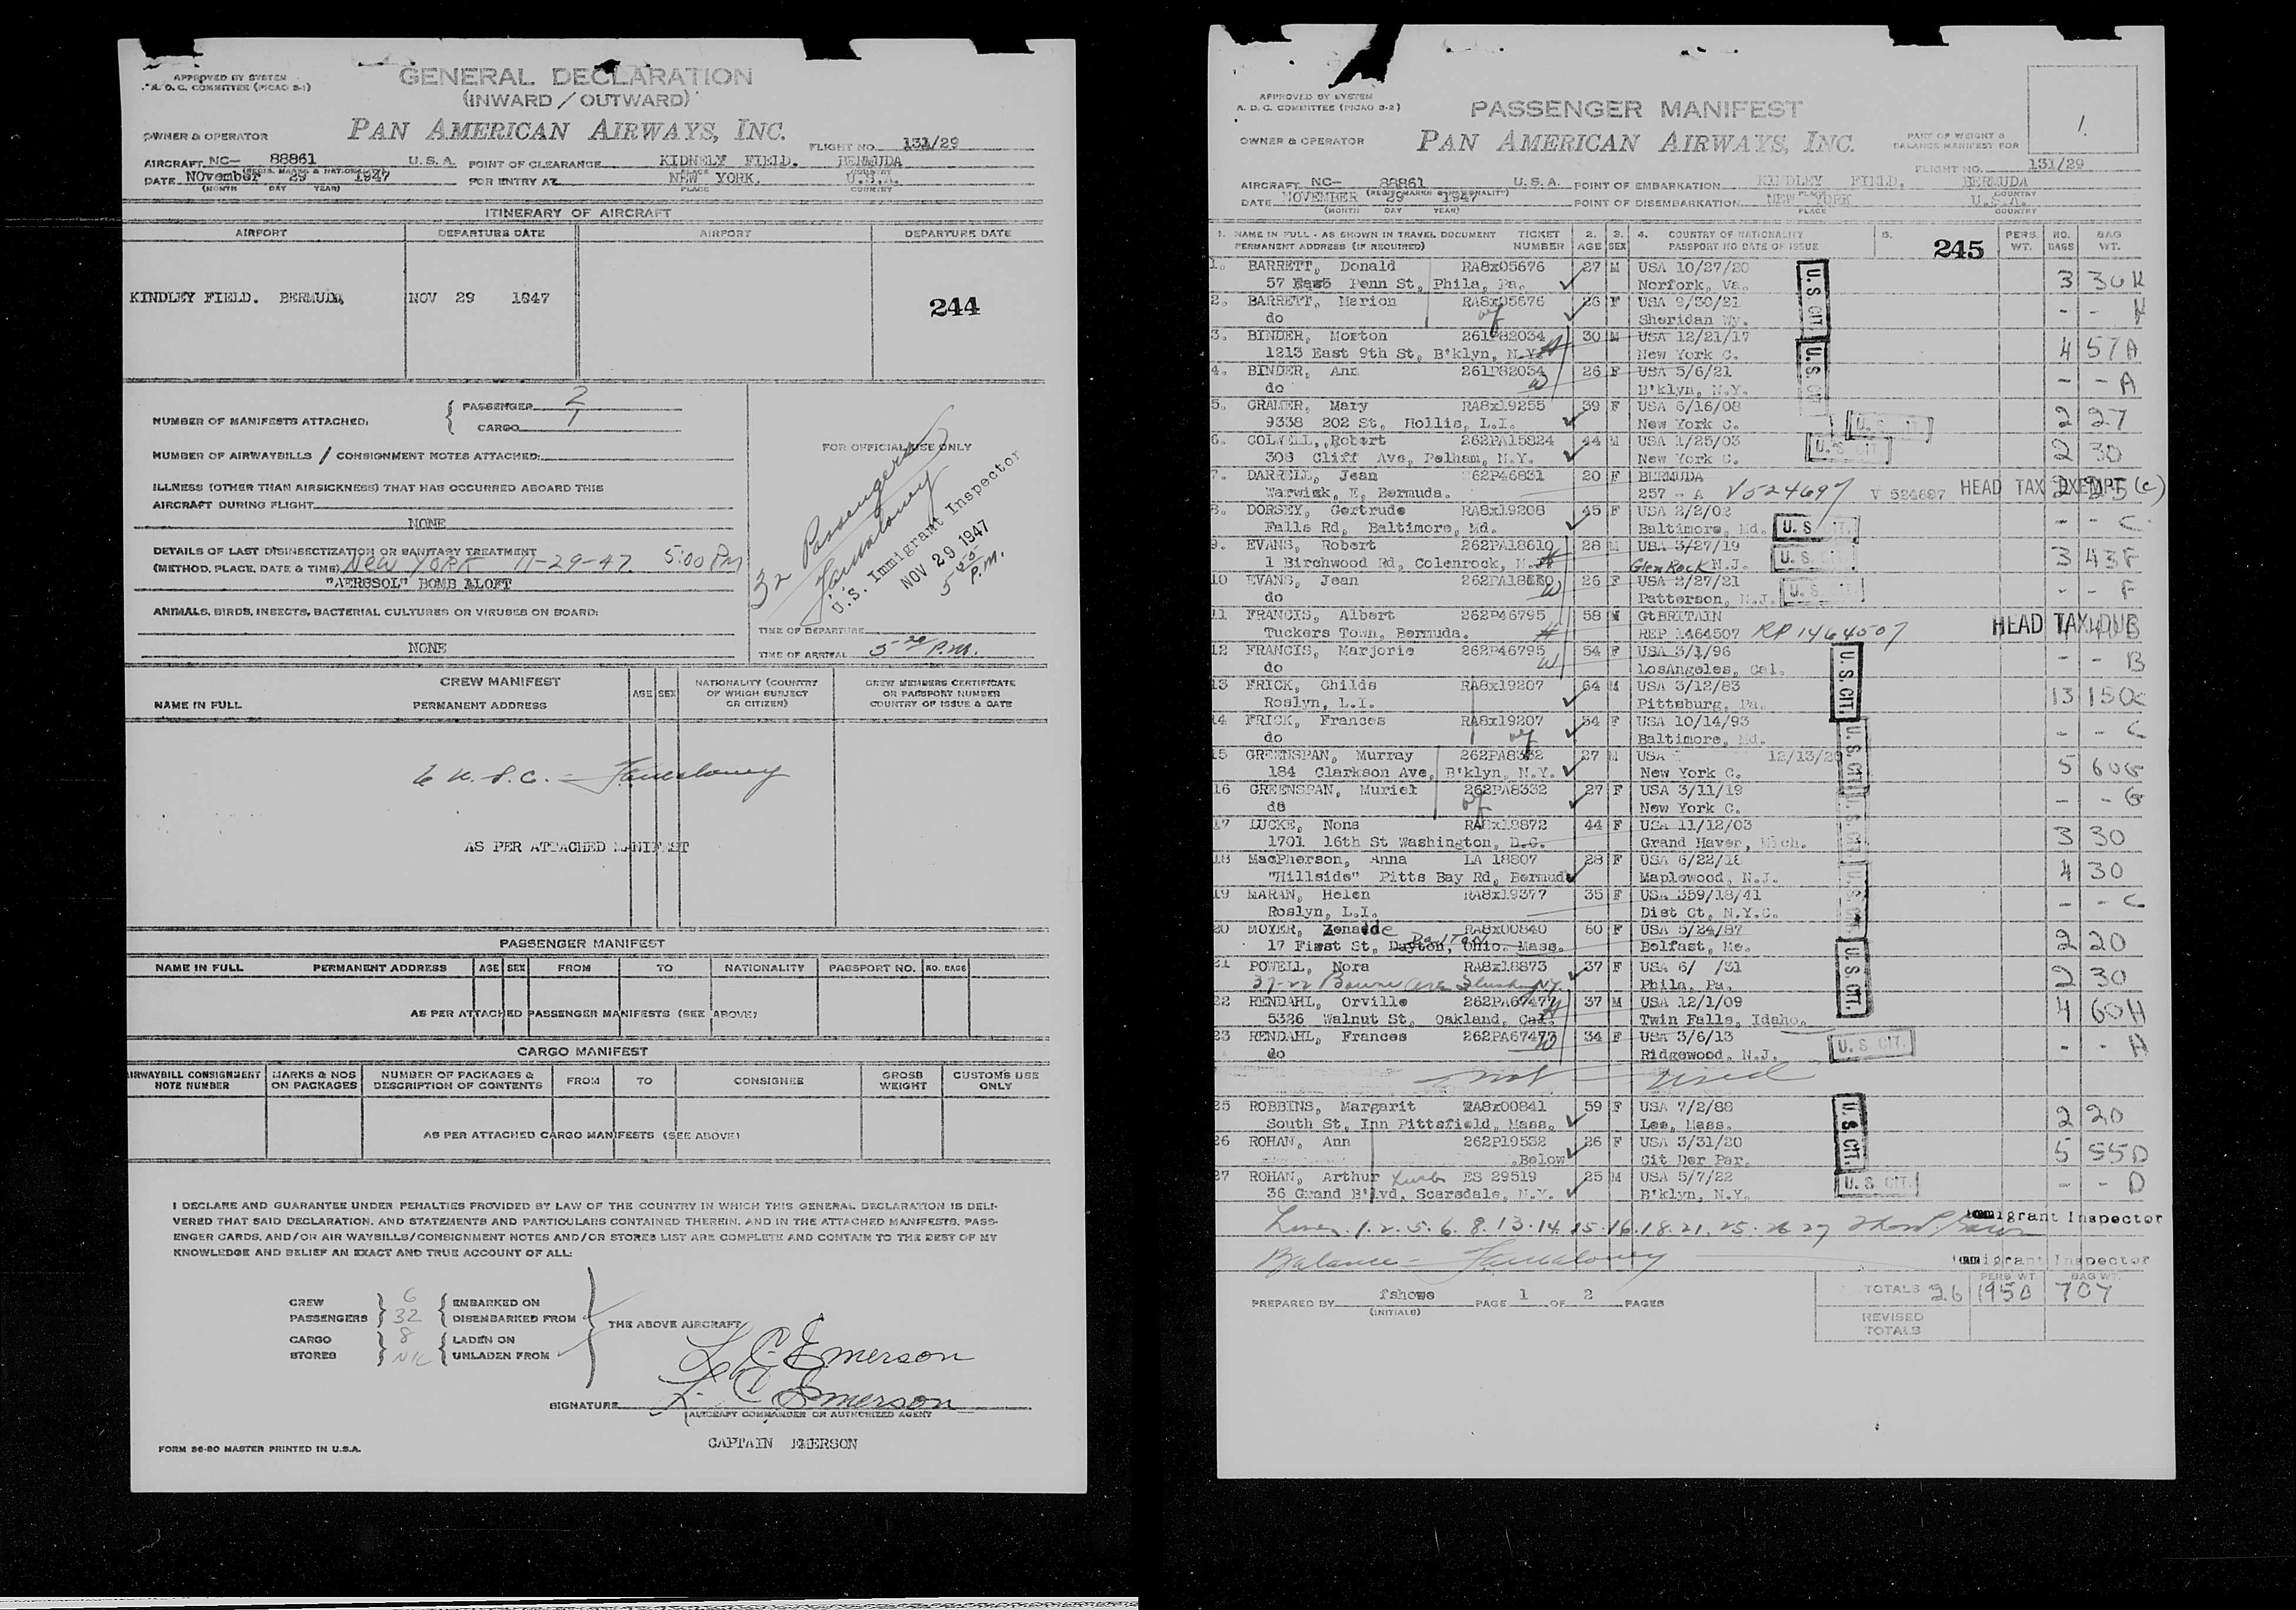 APPROVED BY SYSTEM
A. D. C. COMMITTEE (PICAO B-1)
GENERAL DECLARATION
(INWARD / OUTWARD)
OWNER & OPERATOR
PAN AMERICAN AIRWAYS, INC.
FLIGHT NO. 131/29
AIRCRAFT NC- 88861 U.S.A. POINT OF CLEARANCE KIDNELY FIELD. BERMUDA
(REGIS. MARKS & NATIONALITY) PLACE COUNTRY
DATE NOvember 29 1947 FOR ENTRY AT NEW YORK. U.S.A.
(MONTH DAY YEAR) PLACE COUNTRY
ITINERARY OF AIRCRAFT
AIRPORT DEPARTURE DATE AIRPORT DEPARTURE DATE
KINDLEY FIELD. BERMUDA, NOV 29 1947
244
NUMBER OF MANIFESTS ATTACHED: PASSENGER 2
CARGO 1
FOR OFFICIAL USE ONLY
NUMBER OF AIRWAYBILLS / CONSIGNMENT NOTES ATTACHED:
ILLNESS (OTHER THAN AIRSICKNESS) THAT HAS OCCURRED ABOARD THIS
AIRCRAFT DURING FLIGHT
NONE
DETAILS OF LAST DISINSECTIZATION OR SANITARY TREATMENT
(METHOD, PLACE, DATE & TIME) NEW YORK 11-29-47 5:00 PM
"AERGSOL" BOMB ALOFT
32 Passengers
U.S. Immigrant Inspector
NOV 29 1947
5 25 P.M.
ANIMALS, BIRDS, INSECTS, BACTERIAL CULTURES OR VIRUSES ON BOARD:
NONE
TIME OF DEPARTURE
TIME OF ARRIVAL 5 20 P.M.
CREW MANIFEST
NAME IN FULL PERMANENT ADDRESS AGE SEX NATIONALITY (COUNTRY OF WHICH SUBJECT OR CITIZEN) CREW MEMBERS CERTIFICATE OR PASSPORT NUMBER COUNTRY OF ISSUE & DATE
6 U.S.C. -
AS PER ATTACHED MANIFEST
PASSENGER MANIFEST
NAME IN FULL PERMANENT ADDRESS AGE SEX FROM TO NATIONALITY PASSPORT NO. NO. BAGS
AS PER ATTACHED PASSENGER MANIFESTS (SEE ABOVE)
CARGO MANIFEST
AIRWAYBILL CONSIGNMENT NOTE NUMBER MARKS & NOS ON PACKAGES NUMBER OF PACKAGES & DESCRIPTION OF CONTENTS FROM TO CONSIGNEE GROSS WEIGHT CUSTOMS USE ONLY
AS PER ATTACHED CARGO MANIFESTS (SEE ABOVE)
I DECLARE AND GUARANTEE UNDER PENALTIES PROVIDED BY LAW OF THE COUNTRY IN WHICH THIS GENERAL DECLARATION IS DELI-
VERED THAT SAID DECLARATION, AND STATEMENTS AND PARTICULARS CONTAINED THEREIN, AND IN THE ATTACHED MANIFESTS, PASS-
ENGER CARDS, AND/OR AIR WAYBILLS/CONSIGNMENT NOTES AND/OR STORES LIST ARE COMPLETE AND CONTAIN TO THE BEST OF MY
KNOWLEDGE AND BELIEF AN EXACT AND TRUE ACCOUNT OF ALL:
CREW 6 EMBARKED ON
PASSENGERS 32 DISEMBARKED FROM
THE ABOVE AIRCRAFT
CARGO 8 LADEN ON
STORES NIL UNLADEN FROM
L C Emerson
SIGNATURE L. C Emerson
(AIRCRAFT COMMANDER OR AUTHORIZED AGENT
CAPTAIN EMERSON
FORM 86-80 MASTER PRINTED IN U.S.A.
APPROVED BY SYSTEM
A. D. C. COMMITTEE (PICAO B-2)
PASSENGER MANIFEST
1.
OWNER & OPERATOR
PAN AMERICAN AIRWAYS, INC.
PART OF WEIGHT &
BALANCE MANIFEST FOR
FLIGHT NO. 131/29
AIRCRAFT NC- 88861 U.S.A. POINT OF EMBARKATION KINDLEY FIELD. BERMUDA
(REGIS MARKS & NATIONALITY) PLACE COUNTRY
DATE NOVEMBER 29 1947 POINT OF DISEMBARKATION NEW YORK U.S.A.
(MONTH DAY YEAR) PLACE COUNTRY
1. NAME IN FULL - AS SHOWN IN TRAVEL DOCUMENT TICKET 2. 3. 4. COUNTRY OF NATIONALITY 5. PERS. NO. BAG
PERMANENT ADDRESS (IF REQUIRED) NUMBER AGE SEX PASSPORT NO DATE OF ISSUE 245 WT. BAGS WT.
1. BARRETT, Donald RA8x05676 27 M USA 10/27/20
57 East Penn St, Phila, Pa. Norfork, Va. 3 30 K
2. BARRETT, Marion RA8x05676 26 F USA 9/30/21
do Sheridan Wy. - - K
U. S. CIT.
3. BINDER, Morton 261P82034 30 M USA 12/21/17
1213 East 9th St, B'klyn, N.Y. H New York C. 4 57 A
4. BINDER, Ann 261P82034 26 F USA 5/6/21
do W B'klyn, N.Y. - - A
U. S. CIT
5. CRAMER, Mary RA8x19255 39 F USA 6/16/08
9338 202 St, Hollis, L.I. New York C. U. S. CIT. 2 27
6. COLWELL, Robert 262PA15824 44 M USA 1/25/03
308 Cliff Ave, Pelham, N.Y. New York C. U. S. CIT 2 30
7. DARRELL, Jean 262P46831 20 F BERMUDA
Warwick, E, Bermuda. 257 - A V524697 V 524697 HEAD TAX EXEMPT (c) 2 25
8. DORSEY, Gertrude RA8x19208 45 F USA 2/2/02
Falls Rd, Baltimore, Md. Baltimore, Md. U. S. CIT. - - C
9. EVANS, Robert 262PA18610 28 M USA 3/27/19
1 Birchwood Rd, Colenrock, N. H Glen Rock N.J. U. S. CIT. 3 43 F
10 EVANS, Jean 26 F USA 2/27/21
do W Patterson, N.J. U. S. CIT. - - F
11 FRANCIS, Albert 262P46795 58 M GtBRITAIN
Tuckers Town, Bermuda. H REP 1464507 RP 1464507 HEAD TAX DUE
12 FRANCIS, Marjorie 262P46795 54 F USA 3/1/96
do W LosAngeles, Cal. - - B
13 FRICK, Childs RA8x19207 64 M USA 3/12/83
Roslyn, L.I. Pittsburg, Pa. 13 150 C
U. S. CIT.
14 FRICK, Frances RA8x19207 54 F USA 10/14/93
do Baltimore, Md. - - C
15 GREENSPAN, Murray 262PA8332 27 M USA 12/13/20
184 Clarkson Ave, B'klyn, N.Y. New York C. 5 60 G
U. S. CIT
16 GREENSPAN, Muriel 262PA8332 27 F USA 3/11/19
do New York C. - - G
17 LUCKE, Nona RA8x18872 44 F USA 11/12/03
1701 16th St Washington, D.C. Grand Haver, Mich. 3 30
U. S. CIT
18 MacPherson, Anna LA 18807 28 F USA 6/22/18
"Hillside" Pitts Bay Rd, Bermuda Maplewood, N.J. 4 30
19 MARAN, Helen RA8x19377 35 F USA 359/18/41
Roslyn, L.I. Dist Ct, N.Y.C. - - C
U. S. CIT
20 MOYER, Zenaide RA8x00840 60 F USA 5/24/87
17 First St, Dayton, Ohio. Mass. Dalton Belfast, Me. 2 20
21 POWELL, Nora RA8x18873 37 F USA 6/ /31
37-22 Bowne Ave Flushing NY. Phila. Pa. 2 30
U. S. CIT.
22 RENDAHL, Orville 262PA67477 37 M USA 12/1/09
5326 Walnut St, Oakland, Cal. H Twin Falls, Idaho. 4 60 H
23 RENDAHL, Frances 262PA67477 34 F USA 3/6/13
do W Ridgewood, N.J. U. S. CIT. - - H
not used
25 ROBBINS, Margarit RA8x00841 59 F USA 7/2/88
South St, Inn Pittsfield, Mass. Lee, Mass. 2 20
26 ROHAN, Ann 262P19532 26 F USA 3/31/20
.Below Cit Der Par. 5 55 D
U. S. CIT.
27 ROHAN, Arthur ES 29519 25 M USA 5/7/22
36 Grand B'lvd, Scarsdale, N.Y. B'klyn, N.Y. U. S. CIT. - - D
Lines. 1. 2. 5. 6. 8. 13. 14. 15. 16. 18. 21. 25. 26 27 Immigrant Inspector
Balance - Immigrant Inspector
PREPARED BY fshowe PAGE 1 OF 2 PAGES
(INITIALS)
PERS WT. BAG WT.
TOTALS 26 1950 707
REVISED
TOTALS